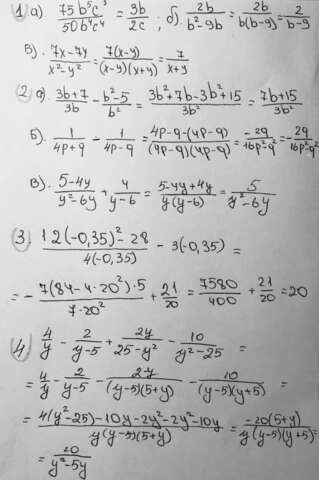 1. а) 75b⁵c³/50b⁴c⁴ = 3b/2c ; б). 2b/b²-9b = 2b/b(b-9) = 2/b-9
в). 7x-7y/x²-y² = 7(x-y)/(x-y)(x+y) = 7/x+y
2. а). 3b+7/3b - b²-5/b² = 3b²+7b-3b²+15/3b² = 7b+15/3b²
Б). 1/4p+q - 1/4p-q = 4p-q-(4p-q)/(4p-q)(4p-q) = -2q/16p²-q² = -2q/16p²-q²
в). 5-4y/y²-6y + 4/y-6 = 5-4y+4y/y(y-6) = 5/y²-6y
3. 12(-0,35)²-28/4(-0,35) - 3(-0,35) =
= - 7(84-4·20²)·5/7·20² + 21/20 = 7580/400 + 21/20 = 20
4) 4/y - 2/y-5 + 2y/25-y² - 10/y²-25 =
= 4/y - 2/y-5 - 2y/(y-5)(5+y) - 10/(y-5)(y+5) =
= 4(y²-25)-10y-2y²-2y²-10y/y(y-5)(5+y) = -20(5+y)/y(y-5)(y+5) =
= 20/y²-5y